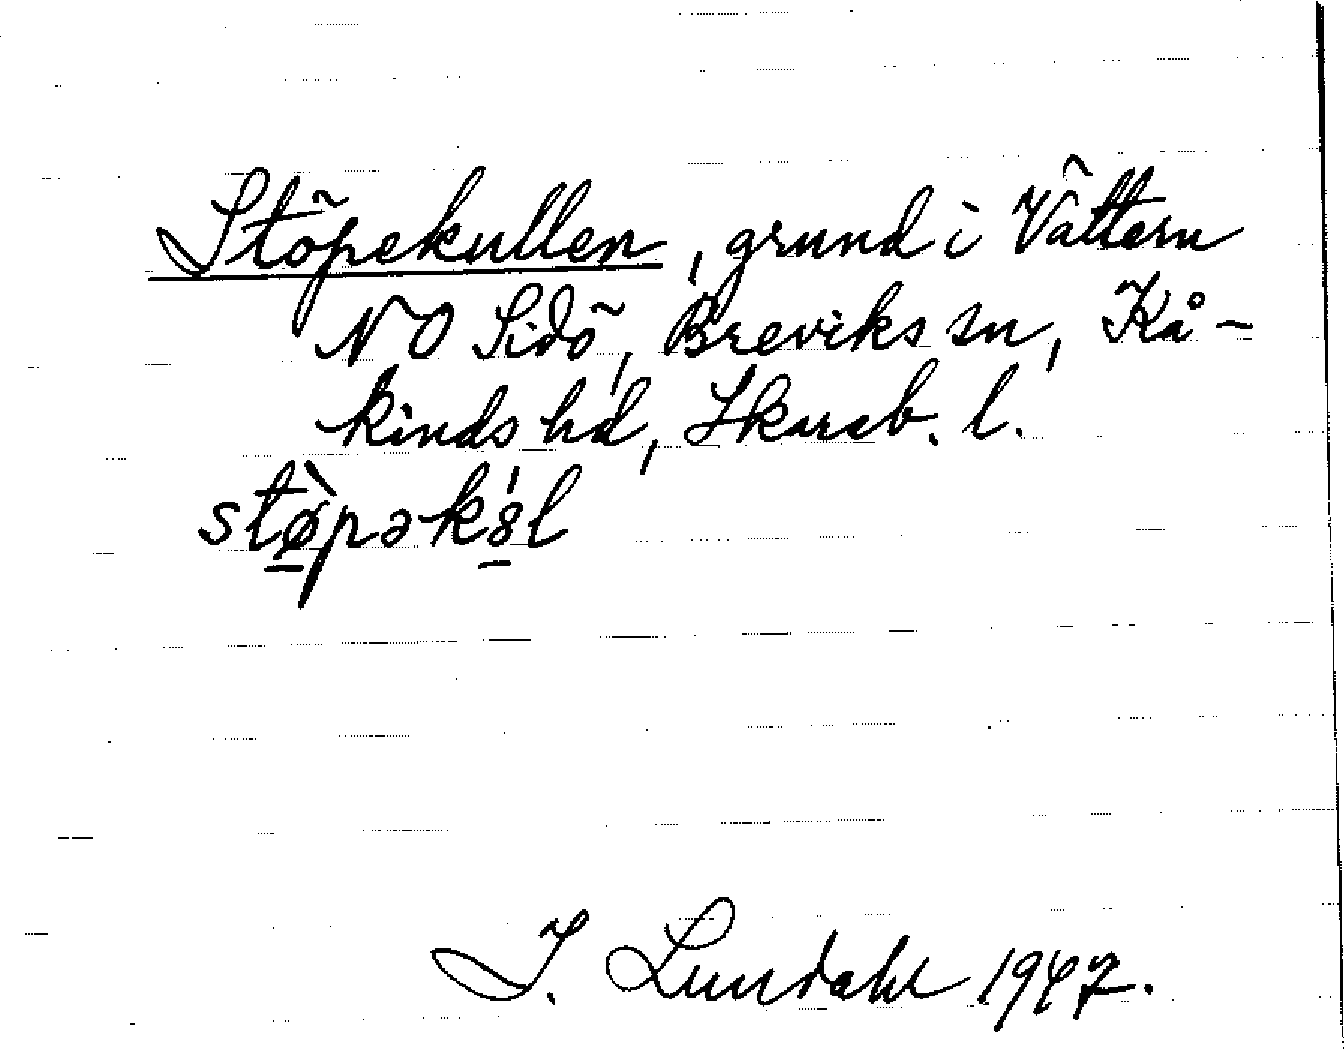 Stöpekullen, grund i Vättern
NO Sidö, Breviks sn, Kå-
kinds hd, Skarab. l.
stø̀pəkúl
I. Lundahl 1947.